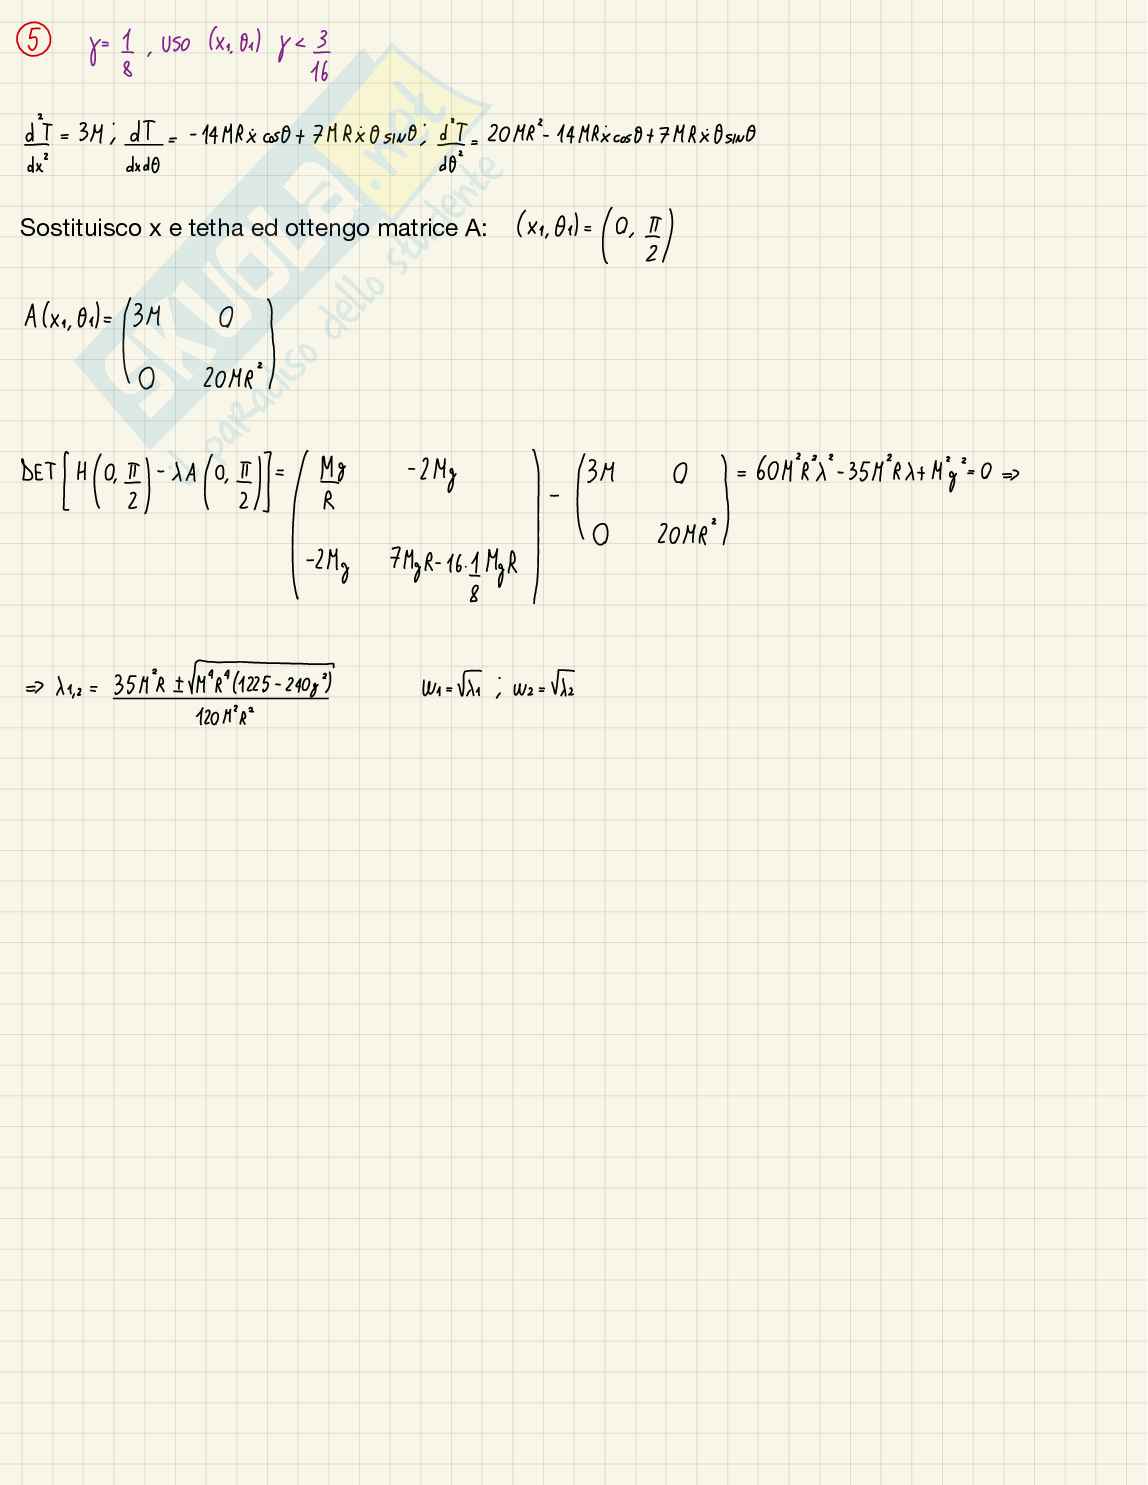 5 γ= 1/8 , USO (x1, θ1) γ < 3/16
d²T/dx² = 3M ; dT/dxdθ = -14MRẋ cosθ + 7MRẋθ sinθ ; d²T/dθ² = 20MR² - 14MRẋ cosθ + 7MRẋθ sinθ
Sostituisco x e tetha ed ottengo matrice A: (x1, θ1) = (0, π/2)
A(x1, θ1) = (3M 0
0 20MR²)
DET [H(0, π/2) - λA(0, π/2)] = (Mg/R -2Mg
-2Mg 7MgR - 16·1/8 MgR) - (3M 0
0 20MR²) = 60M²R²λ² - 35M²Rλ + M²g² = 0 ⇒
⇒ λ1,2 = 35M²R ± √M⁴R⁴(1225 - 240g²) / 120M²R² w1 = √λ1 ; w2 = √λ2
SKUOLA.net
il paradiso dello studente